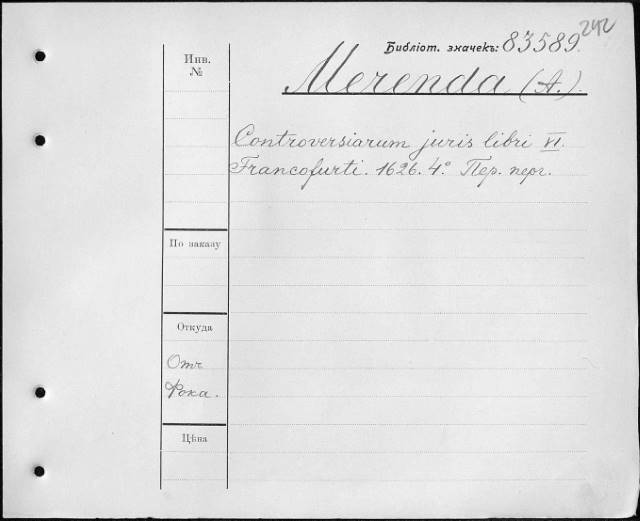 242
Библіот. значекъ: 83589.
Инв.
№
Merenda (A.).
Controversiarum juris libri VI.
Francofurti. 1626. 4º Пер. перг.
По заказу
Откуда
Отъ
Фока.
Цѣна